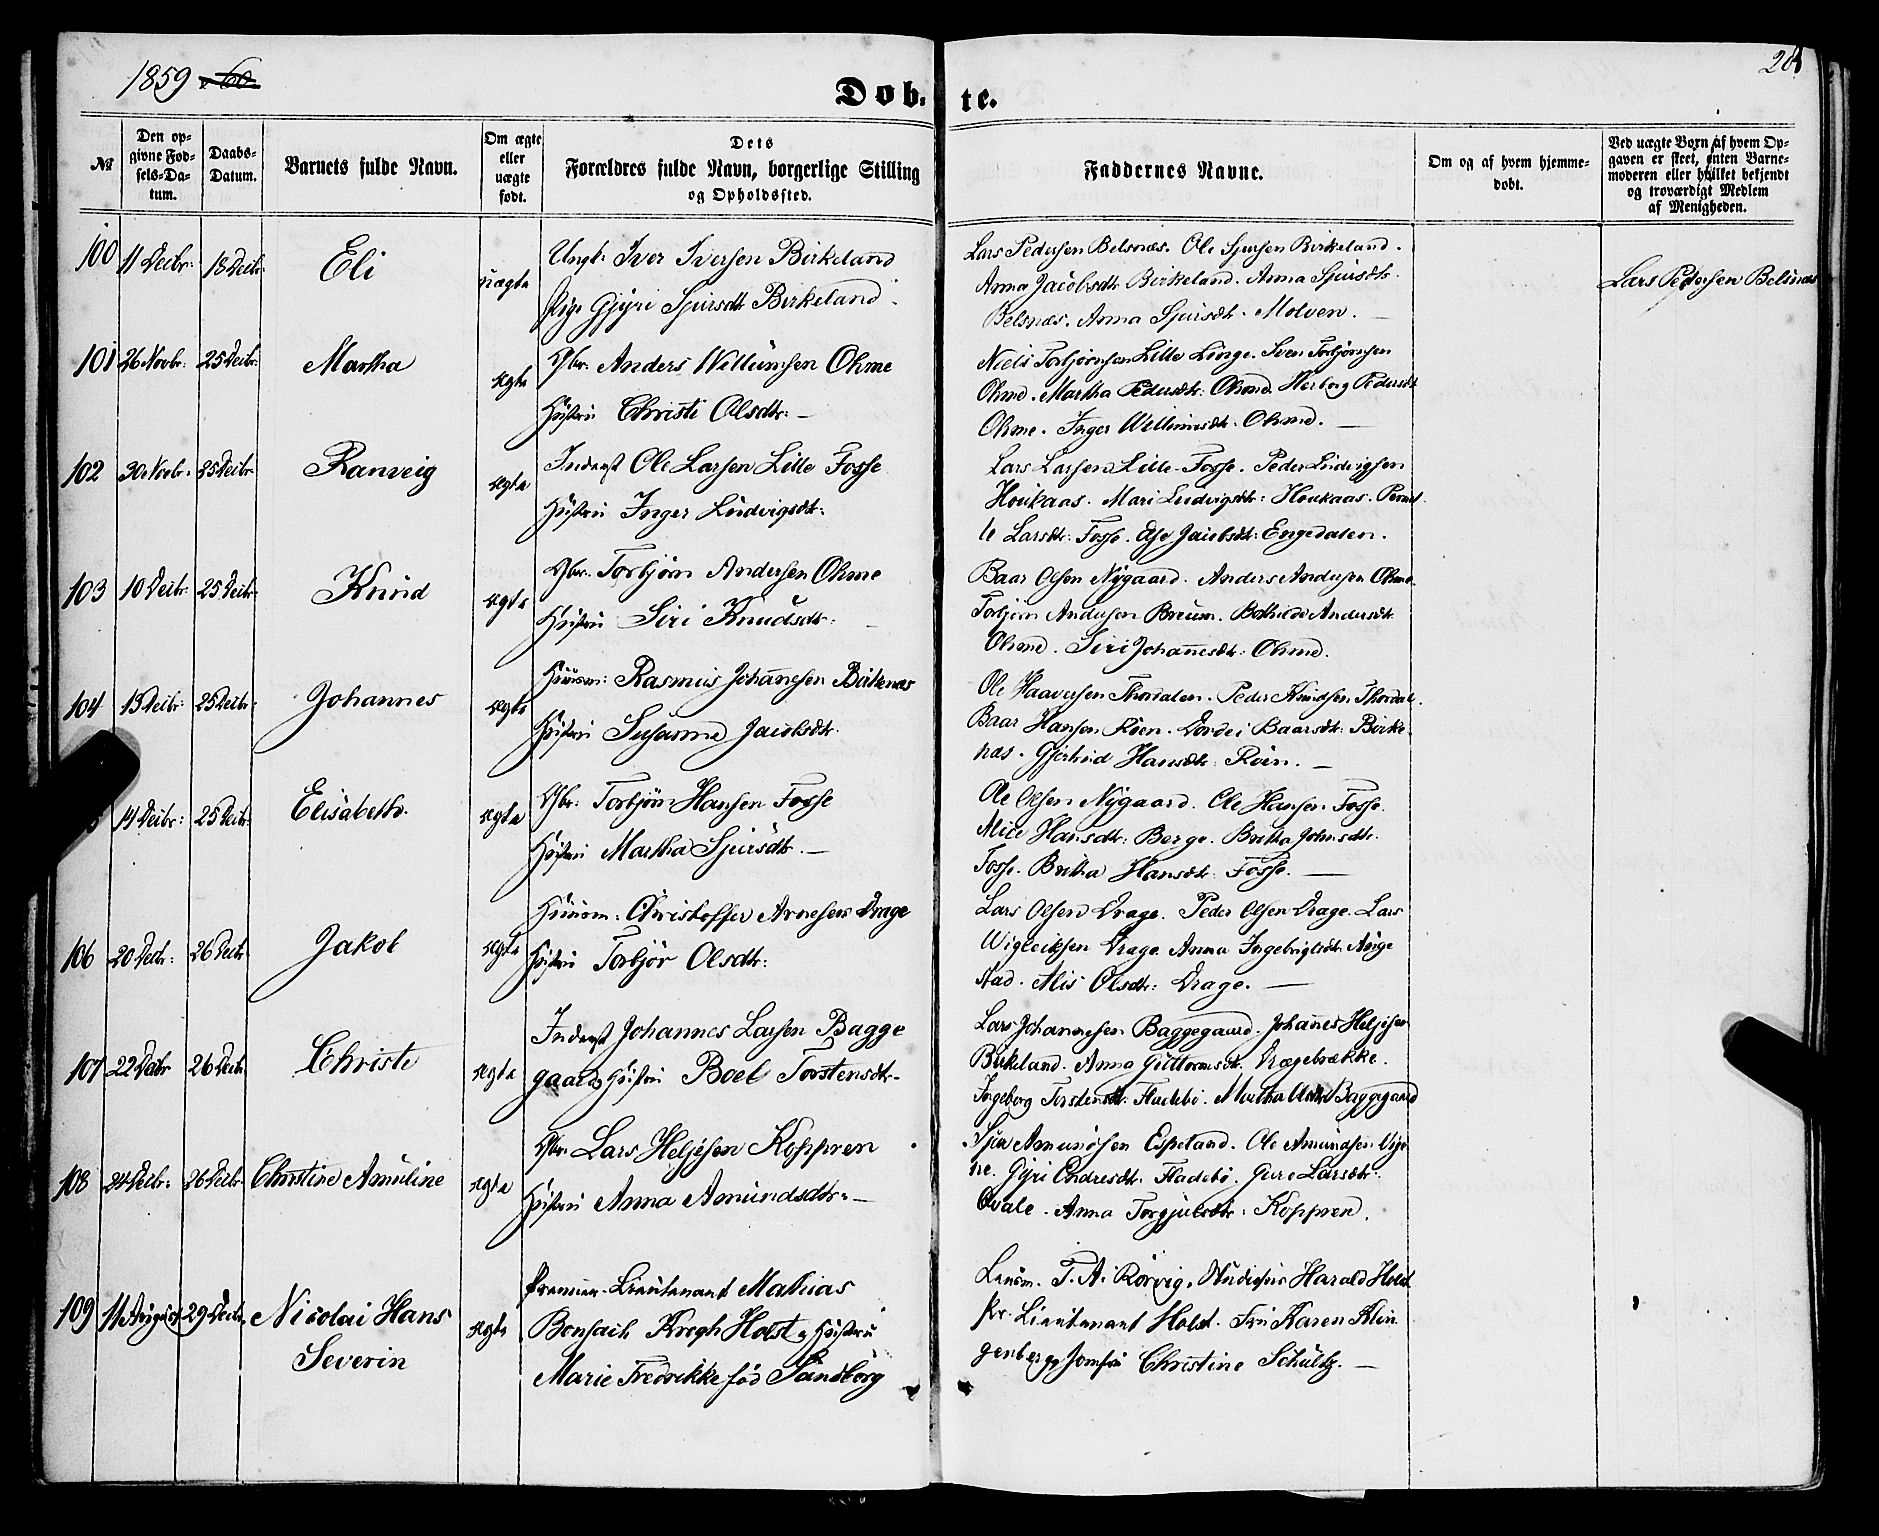 1859 60
26
Döb- te.
№
Den op-
givne Fød-
sels-Da-
tum.
Daabs-
Datum.
Barnets fulde Navn.
Om ægte
eller
uægte
født.
Dets
Forældres fulde Navn, borgerlige Stilling
og Opholdssted.
Faddernes Navne.
Om og af hvem hjemme-
døbt.
Ved uægte Børn af hvem Op-
gaven er skeet, enten Barne-
moderen eller hvilket bekjendt
og troværdigt Medlem
af Menigheden.
100 11 Decbr: 18 Decbr: Eli uægte
Ungk: Iver Iversen Birkeland
Pige Gjyri Sjursdtr Birkeland
Lars Pedersen Belsnæs. Ole Sjursen Birkeland.
Anna Jacobsdtr Birkeland. Anna Sjursdtr.
Belsnæs. Anna Sjursdtr. Molven.
Lars Pedersen Belsnæs
101 26 Novbr: 25 Decbr: Martha ægte
Gbr: Anders Willumsen Ohme
Hustru Christi Olsdtr:
Niels Torbjørnsen Lille Linge. Sven Torbjørnsen
Ohme. Martha Pedersdtr: Ohme. Herborg Pedersdt
Ohme. Inger Willumsdtr. Ohme.
102 30 Novbr: 25 Decbr: Ranveig ægte
Inderst Ole Larsen Lille Fosse
Hustru Inger Ludvigsdtr:
Lars Larsen Lille-Fosse. Peder Ludvigsen
Houkaas. Mari Ludvigsdtr: Houkaas. Pernil
le Larsdtr: Fosse. Jacobsdtr: Engedalen.
103 10 Decbr: 25 Decbr: Knud ægte
Gbr: Torbjørn Andersen Ohme
Hustru Siri Knudsdtr:
Baar Olsen Nygaard. Anders Andersen Ohme.
Torbjørn Andersen Breum. Bothilde Andersdtr
Ohme. Siri Johannesdtr: Ohme.
104 13 Decbr: 25 Decbr: Johannes ægte
Huusm: Rasmus Johannesen Birkenæs
Hustru Susanne Jacobsdtr:
Ole Haaversen Thordalen. Peder Knudsen Thordal.
Baar Hansen Röen. Dordei Baarsdtr: Birke-
næs. Gjertrud Hansdtr: Röen.
14 Decbr: 25 Decbr: Elisabeth. ægte
Gbr: Torbjørn Hansen Fosse
Hustru Martha Sjursdtr.
Ole Olsen Nygaard. Ole Hansen Fosse.
Mile Hansdtr: Berge. Britha Johnsdtr.
Fosse. Britha Hansdtr: Fosse.
106 20 Decbr: 26 Decbr Jakob ægte
Huusm: Christoffer Arnesen Drage
Hustru Torbjør Olsdtr:
Lars Olsen Drage. Peder Olsen Drage. Lars
Wigleiksen Drage. Anna Ingebrigtsdtr. Auge
stad. Alis Olsdtr: Drage.
107 22 Decbr 26 Decbr. Christi ægte
Inderst Johannes Larsen Bagge
gaard, Hustru Boel Torstensdtr.
Lars Johannesen Baggegaard. Johannes Heljesen
Birkeland. Anna Guttormsdtr. Dragebrække.
Ingeborg Torstensdtr: Fladebö. Martha Baggegaard
108 24 Decbr: 26 Decbr. Christine Amuline ægte
Gbr. Lars Heljesen Koppren
Hustru Anna Amundsdtr:
Sjur Amundsen Espeland. Ole Amundsen Vige
ne. Gjyri Endresdtr: Fladebö. Guro Larsdtr:
Qvale. Anna Torgjulsdtr: Koppren.
109 11 August 29 Decbr. Nicolai Hans
Severin ægte
Premier-Lieutenant Mathias
Bonsach Krogh Holst, Hustru
Marie Fredrikke fød Sandborg
Lensm. T. A. Rörvig. Studiosus Harald Holst
Pr. Lieutenant Holst. Fru Karen Klin
genberg, Jomfru Christine Schultz.